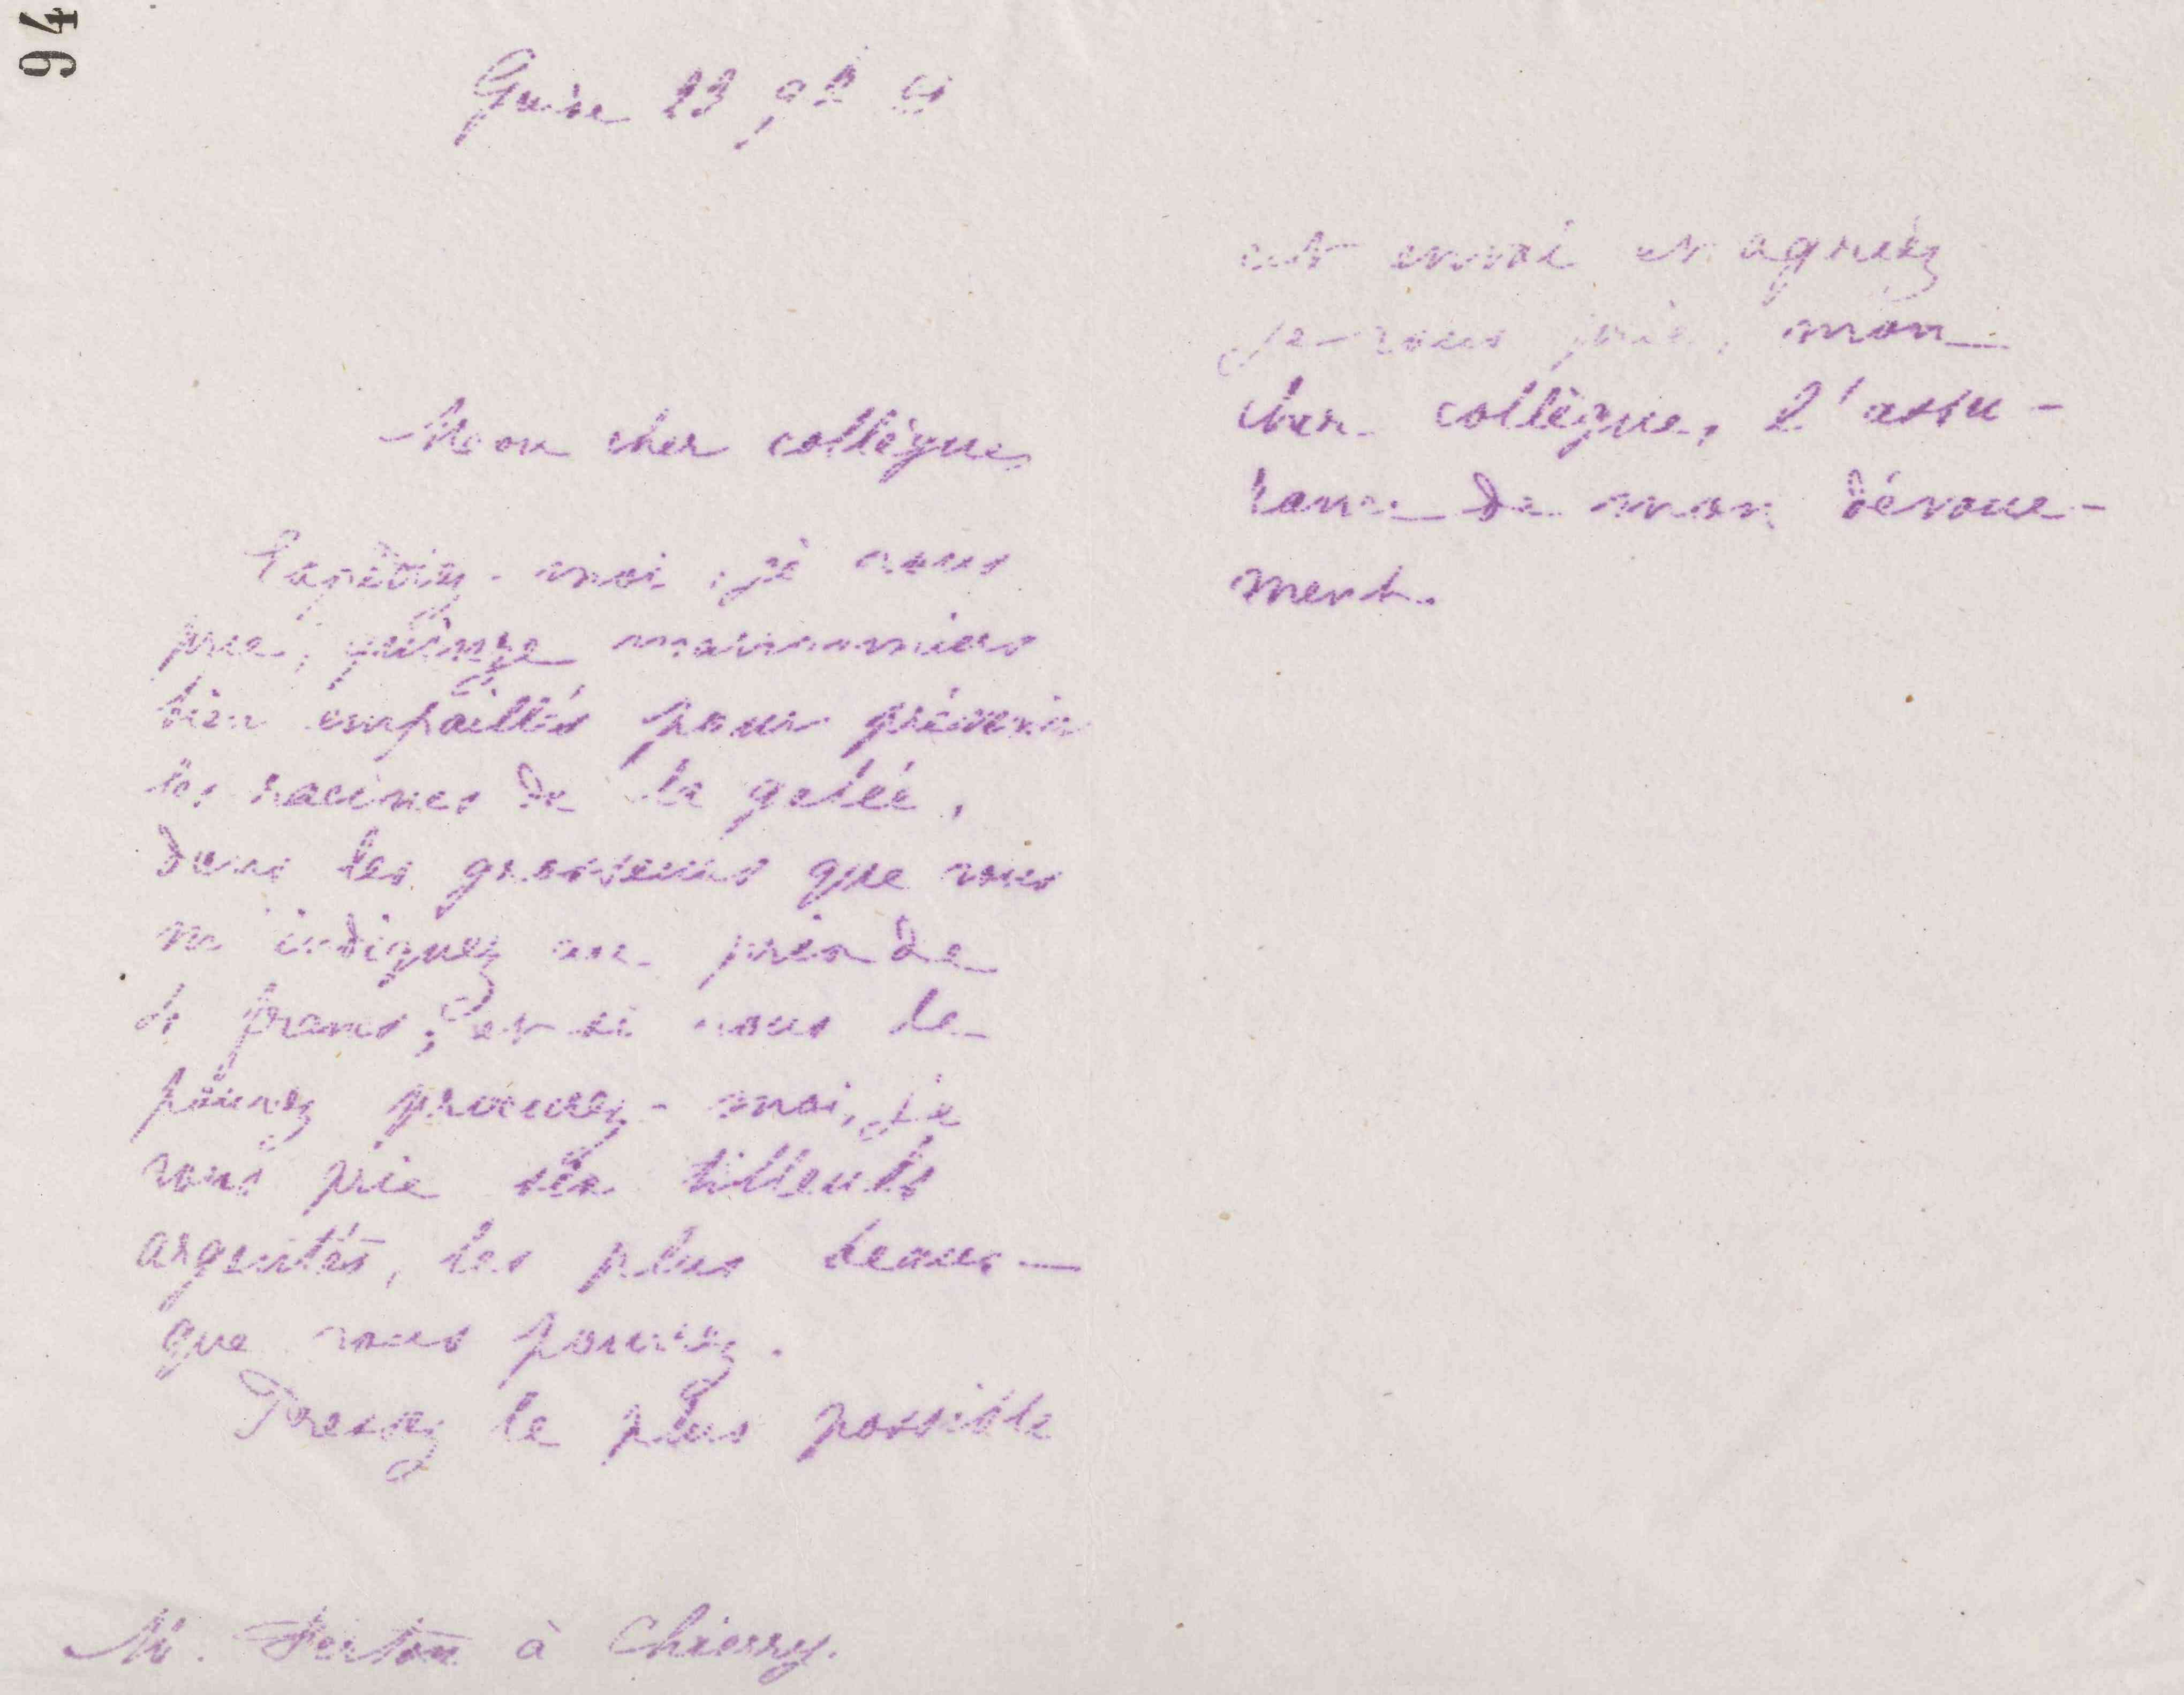 94
Guise 23 9bre
Mon cher collègue,
Expédiez-moi, je vous
prie, quinze marronniers
bien empaillés pour prévenir
les racines de la gelée,
dans les grosseurs que vous
m'indiquez au prix de
4 francs; et si vous le
pouvez procurez-moi, je
vous prie six tilleuls
argentés, les plus beaux
que vous pourrez.
Pressez le plus possible
M. Ferton à Chierry.
cet envoi et agréez
je vous prie, mon
cher collègue, l'assu-
rance de mon dévoue-
ment.